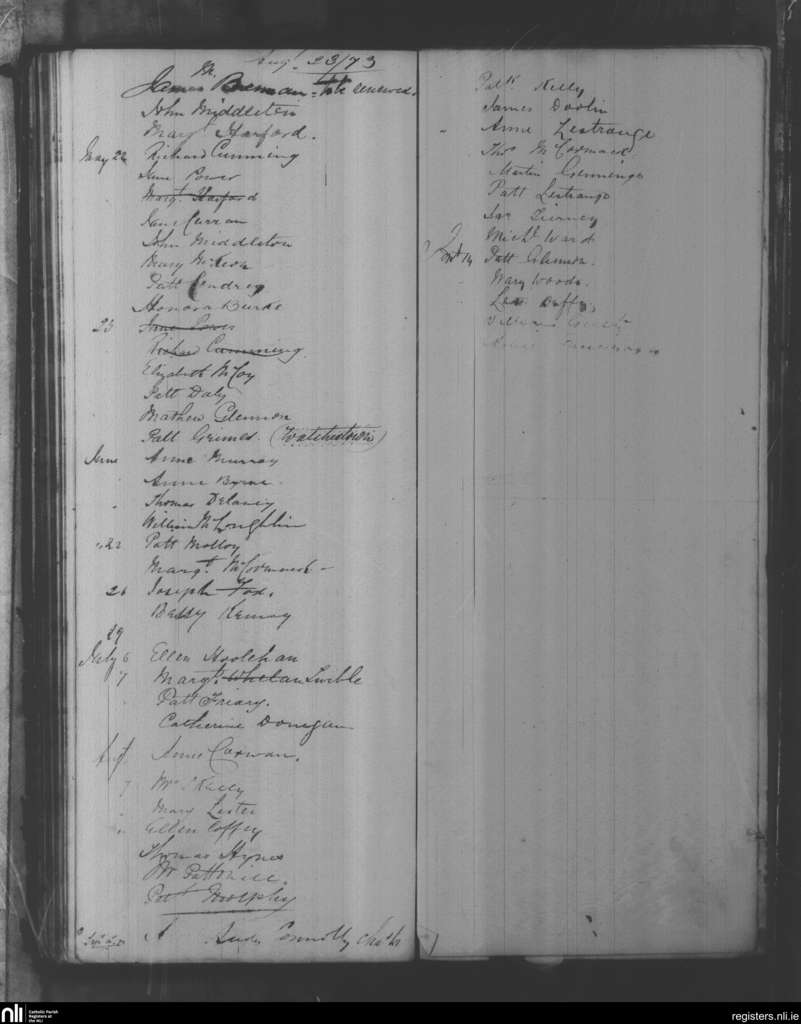 Augt. 23/73
Mr.
James Brennan - to be removed.
John Middleton
Margt. Harford.
May 22 Richard Cumming
Jane Power
Margt. Harford
Jane Curran
John Middleton
Mary McKeon
Patt Hendrey
Honora Burke
23 Jane Power
Richard Cumming
Elizabeth McCoy
Patt Daly
Mathew Glennon
Patt Grimes. (Walshestown)
June Anne Murray
Anne Byrne
Thomas Delaney
William McLoughlin
22 Patt Molloy
Margt. McCormack
26 Joseph Fox.
Bessy Kenny
29
July 6 Ellen Hoolehan
7 Margt. Whelan
Patt Friary.
Catherine Donegan
Anne Carwan.
7 Mr. Kelly
Mary Lester
Ellen Coffey
Thomas Hynes
Mr Patt
Patt Murphy
Connolly
Patk Kelly
James Doolin
Anne Lestrange
Thos McCormack
Martin Gennings
Patt Lestrange
Jas Tierney
Michl Ward
14 Patt Glennon.
Mary Woods.
Duffy
William
nli
Catholic Parish
Registers at
the NLI
registers.nli.ie